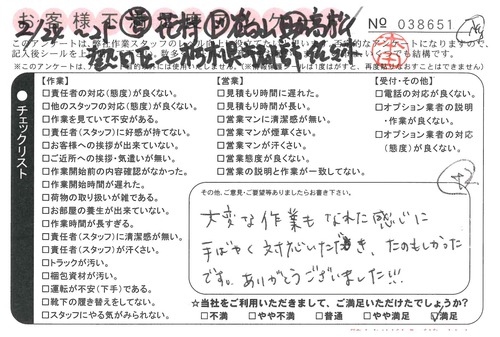 お客様
No 038651
【作業】
□責任者の対応(態度)が良くない。
□他のスタッフの対応(態度)が良くない。
□作業を見ていて不安がある。
□責任者(スタッフ)に好感が持てない。
□お客様への挨拶が出来ていない。
□ご近所への挨拶・気遣いが無い。
□作業開始前の内容確認がなかった。
□作業開始時間が遅れた。
□荷物の取り扱いが雑である。
□お部屋の養生が出来ていない。
□作業時間が長すぎる。
□責任者(スタッフ)に清潔感が無い。
□責任者(スタッフ)が汗くさい。
□トラックが汚い。
□梱包資材が汚い。
□運転が不安(下手)である。
□靴下の履き替えをしてない。
□スタッフにやる気がみられない。
【営業】
□見積もり時間に遅れた。
□見積り時間が長い。
□営業マンに清潔感が無い。
□営業マンが煙草くさい。
□営業マンが汗くさい。
□営業態度が良くない。
□営業の説明と作業が一致してない。
【受付・その他】
□電話の対応が良くない。
□オプション業者の説明
・作業が良くない。
□オプション業者の対応
(態度)が良くない。
●チェックリスト
その他、ご意見・ご要望等ありましたらお書き下さい。
大変な作業も なれた感じに
手ばやく 対応いただき、たのもしかった
です。ありがとうございました!!!
☆当社をご利用いただきまして、ご満足いただけてでしょうか?
□不満 □やや不満 □普通 □やや満足 ☑満足